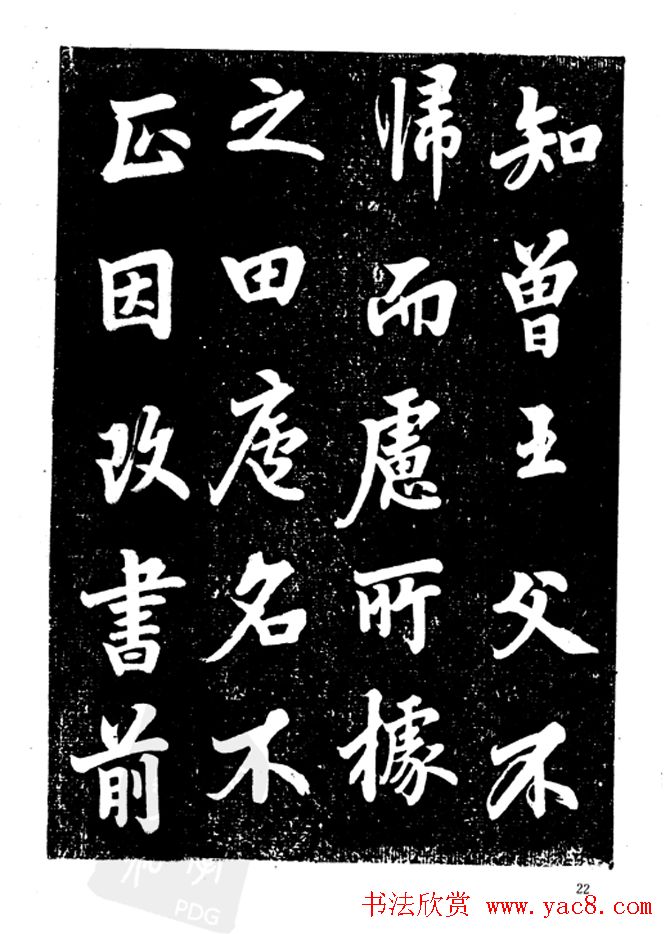 知曾王父不
帰而慮所據
之田庐名不
正因改書前
22
书法欣赏 www.yac8.com
PDG